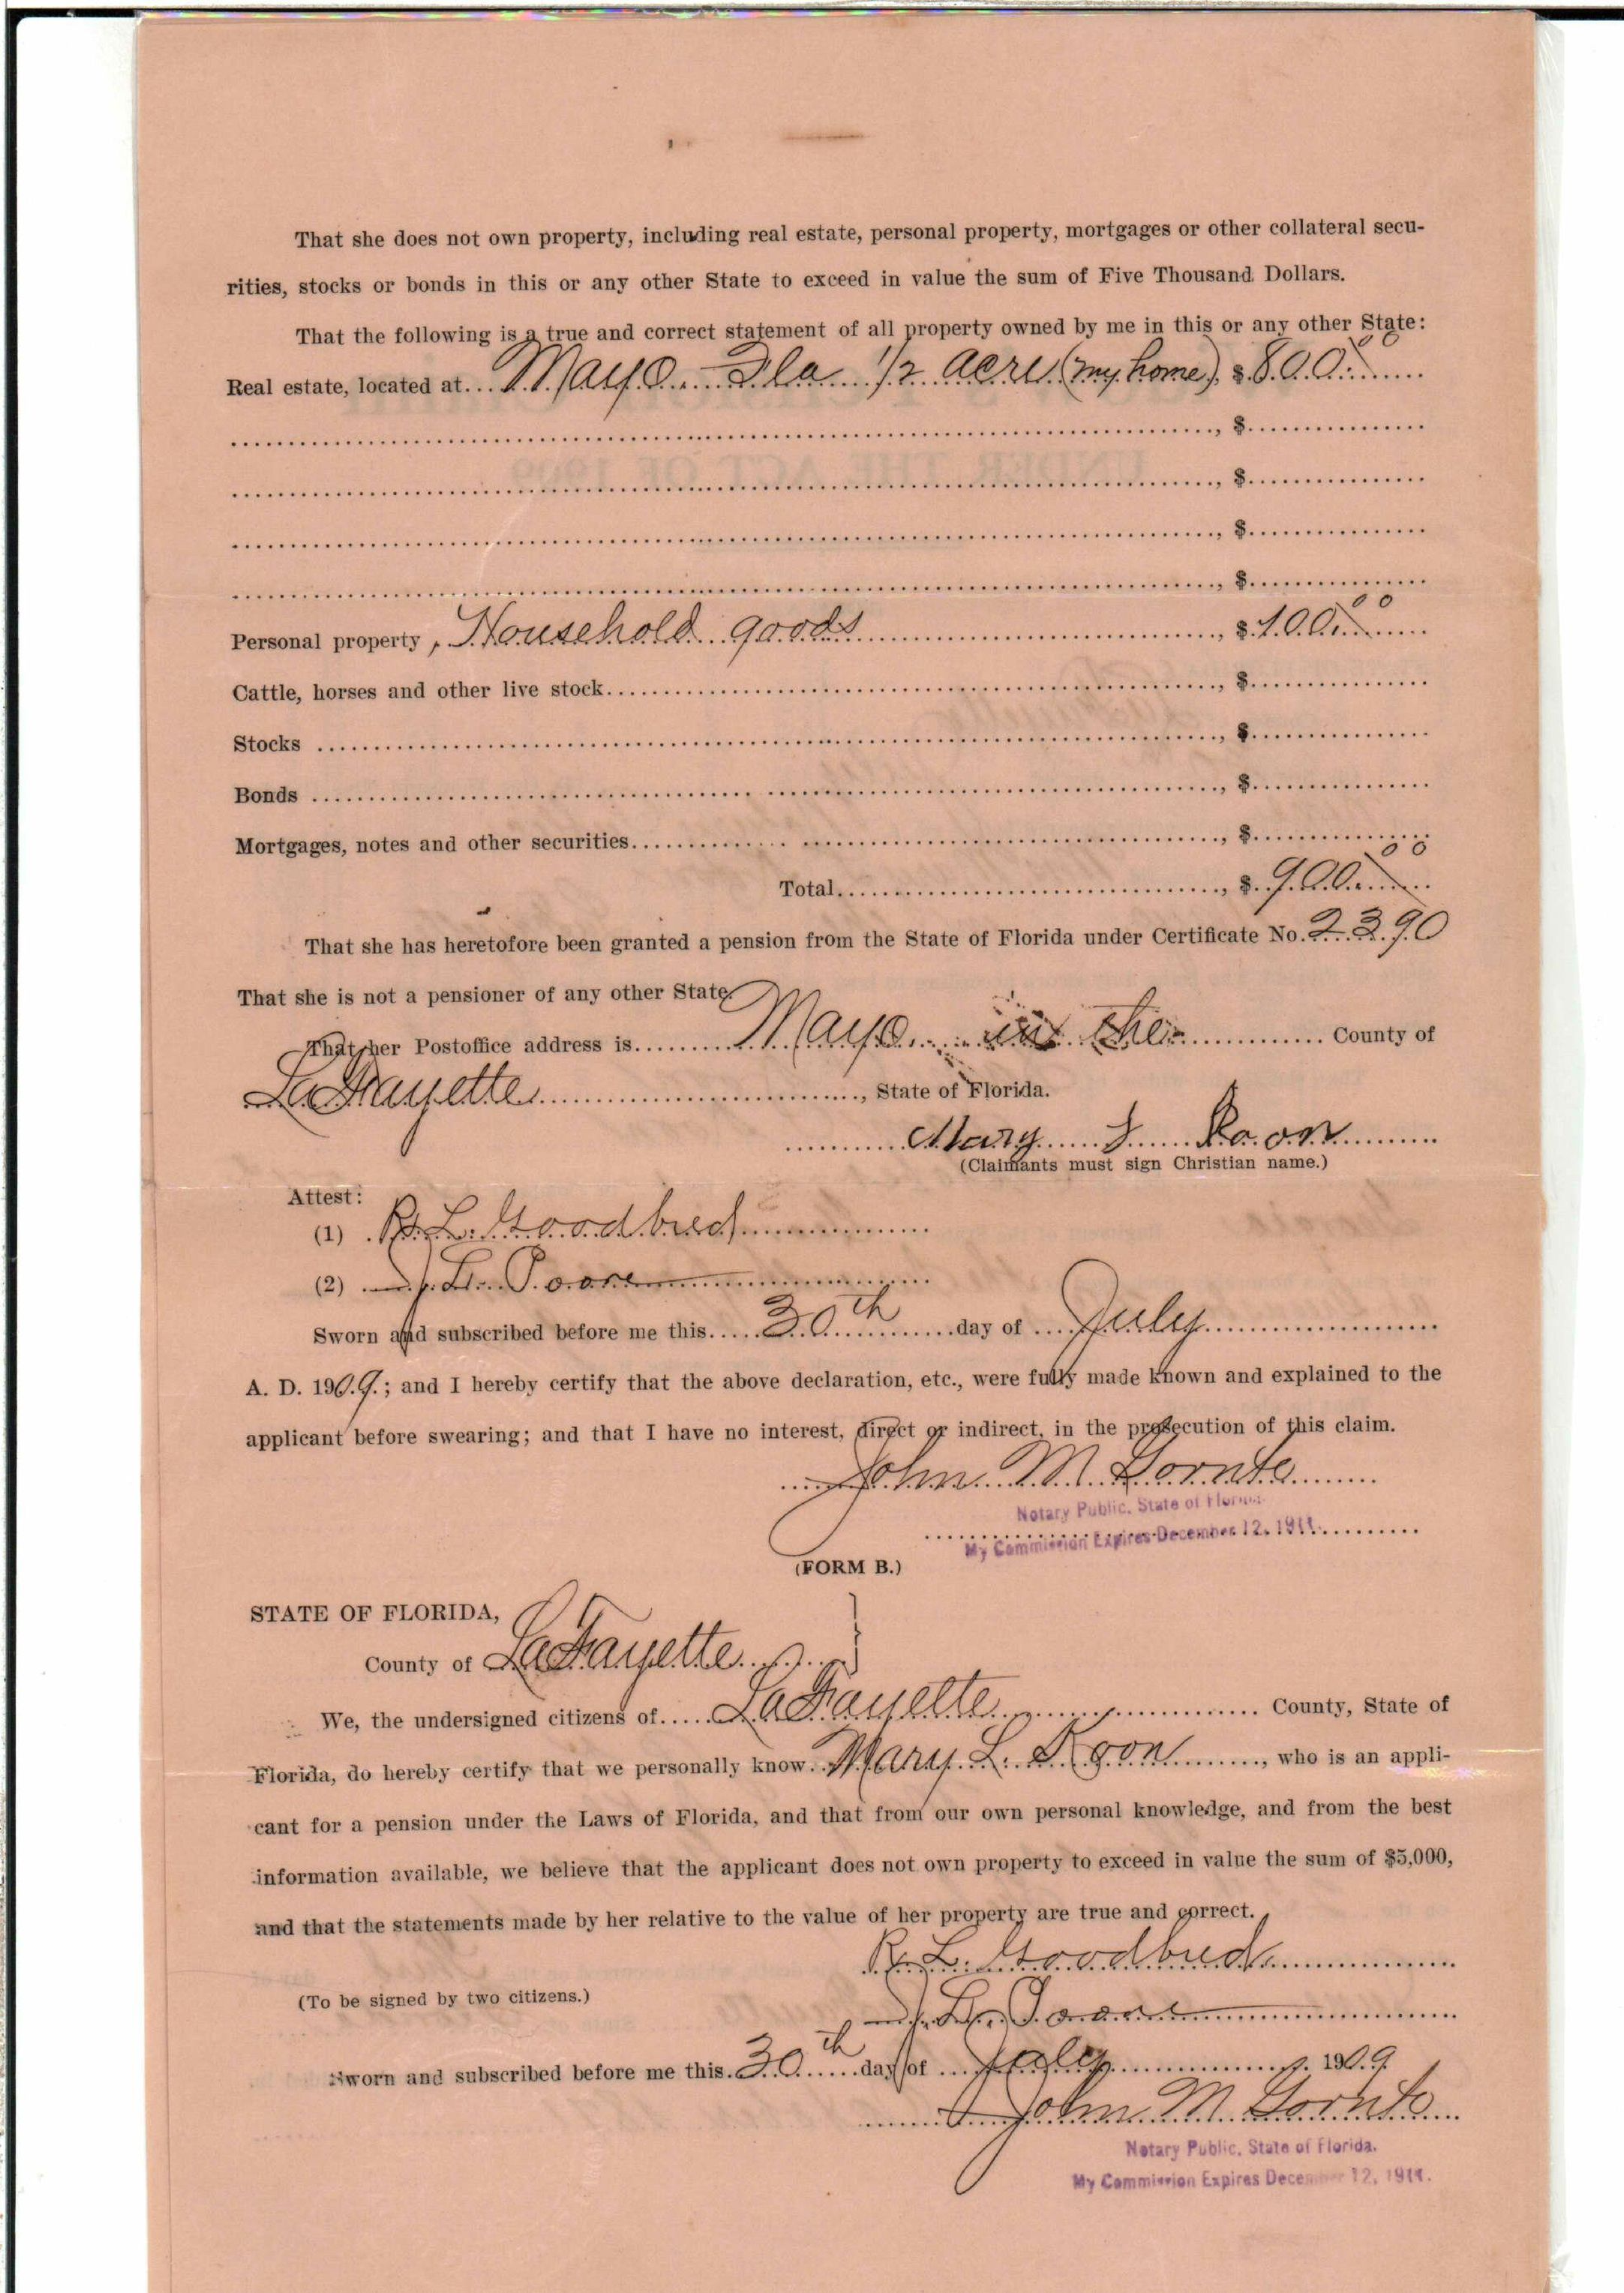 That she does not own property, including real estate, personal property, mortgages or other collateral secu-
rities, stocks or bonds in this or any other State to exceed in value the sum of Five Thousand Dollars.
That the following is a true and correct statement of all property owned by me in this or any other State:
Real estate, located at... Mayo Fla 1/2 acre (my home), $ 800.00
, $
, $
, $
, $
Personal property, Household goods, $ 100.00
Cattle, horses and other live stock, $
Stocks, $
Bonds, $
Mortgages, notes and other securities, $
Total, $ 900.00
That she has heretofore been granted a pension from the State of Florida under Certificate No. 2390
That she is not a pensioner of any other State.
That her Postoffice address is Mayo in the County of
LaFayette, State of Florida.
Mary L Koon
(Claimants must sign Christian name.)
Attest:
(1) R. L. Goodbred
(2) J. L. Poore
Sworn and subscribed before me this 30th day of July
A. D. 1909; and I hereby certify that the above declaration, etc., were fully made known and explained to the
applicant before swearing; and that I have no interest, direct or indirect, in the prosecution of this claim.
John M Gornto
Notary Public, State of Florida.
My Commission Expires December 12, 1911.
(FORM B.)
STATE OF FLORIDA,
County of LaFayette
We, the undersigned citizens of LaFayette County, State of
Florida, do hereby certify that we personally know Mary L. Koon, who is an appli-
cant for a pension under the Laws of Florida, and that from our own personal knowledge, and from the best
information available, we believe that the applicant does not own property to exceed in value the sum of $5,000,
and that the statements made by her relative to the value of her property are true and correct.
R. L. Goodbred
(To be signed by two citizens.)
J. L. Poore
Sworn and subscribed before me this 30th day of July, 1909
John M Gornto
Notary Public, State of Florida.
My Commission Expires December 12, 1911.